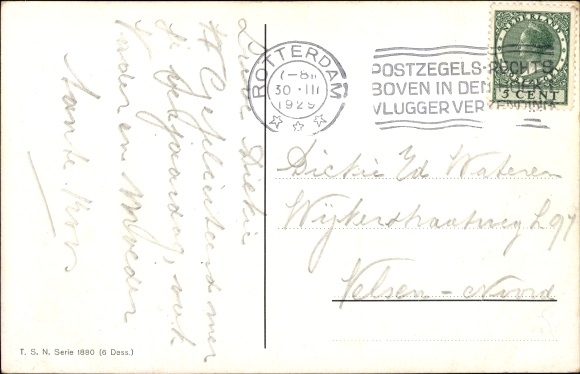 Lieve Dickie
Gefeliciteerd met
je verjaardag, ook
Vader en Moeder
Tante
ROTTERDAM
7-8
30·III
1929
POSTZEGELS RECHTS
BOVEN IN DEN
VLUGGER VER
NEDERLAND
5 CENT
Dickie Ed Wateren
Wijkerstraatweg L 97
Velsen-Noord
T. S. N. Serie 1880 (6 Dess.)